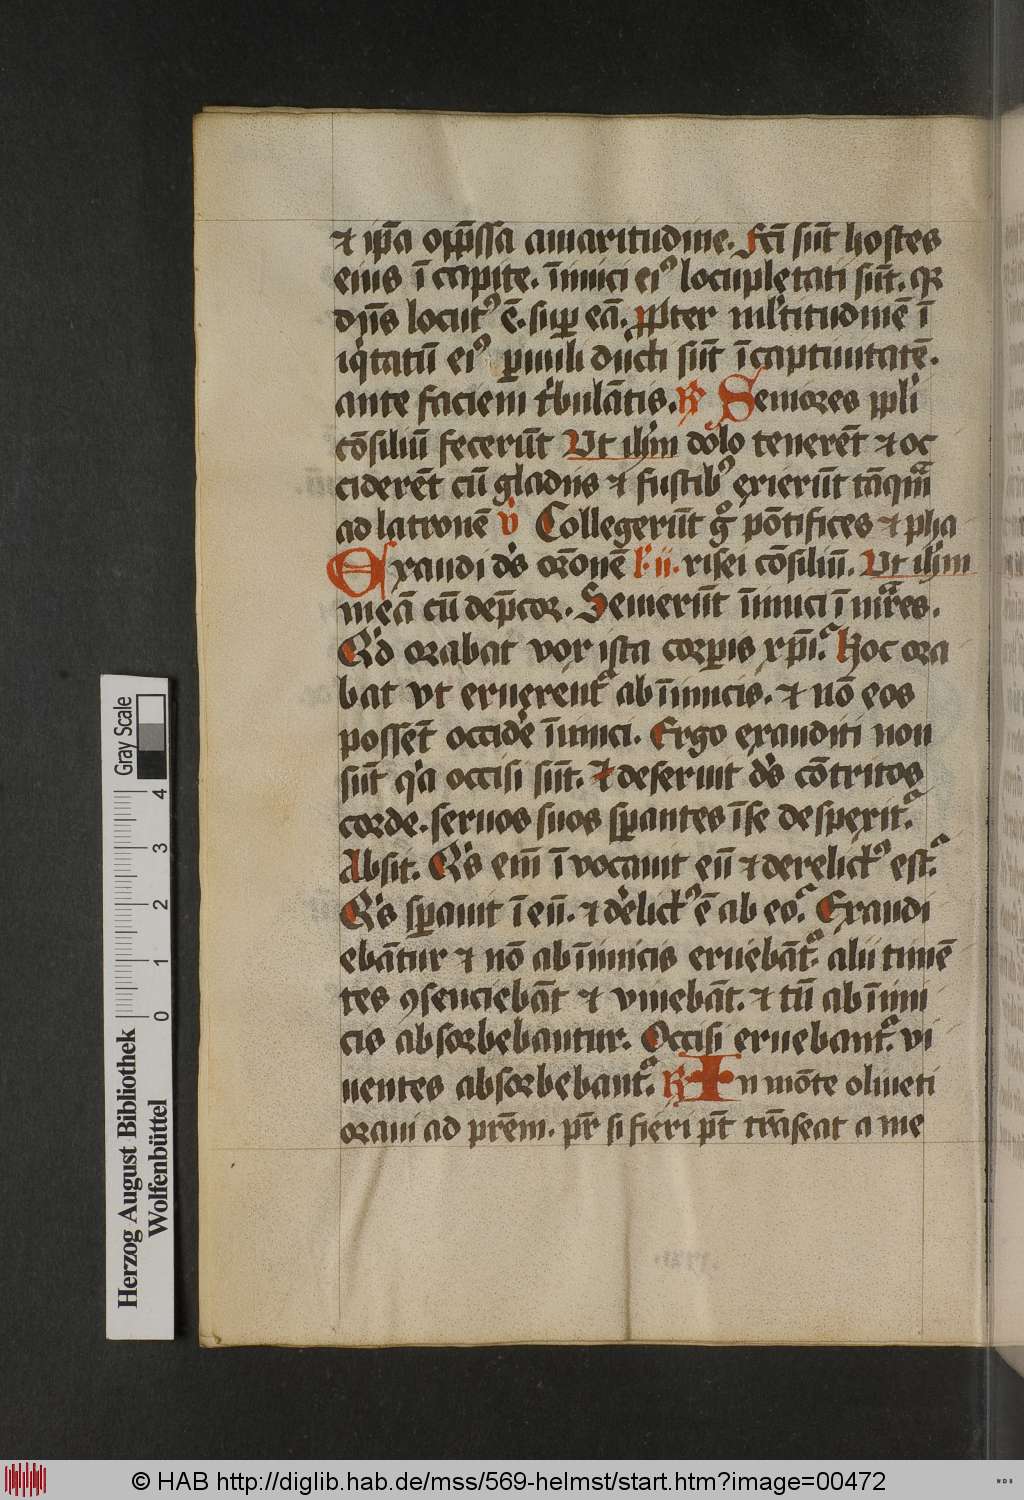 ⁊ ip̄a opp̄ssa amaritudine. Fcī sūt hostes
eius ī capite. īimici ei⁹ locupletati sūt. qꝛ
dn̄s locut⁹ ē. suꝑ eā. ꝓpter ml̓titudinē ī
iq̓tatū ei⁹ ꝑuuli ducti sūt ī captiuitatē.
ante faciem tͥbulātis. ℟ Seniores ppl̓i
cōsiliū fecerūt Ut ih̓m dolo tenerēt ⁊ oc
ciderēt cū gladiis ⁊ fustib⁹ exierūt tāqᷓm
ad latronē ℣ Collegerūt gͦ pōtifices ⁊ pha
Exaudi ds̓ orōnē l̓. ii. risei cōsiliū. Ut ih̓m
meā cū dep̄cor. Semerūt īimici ī mr̄es.
Qd̓ orabat vox ista corꝑis xp̄i. Hoc ora
bat vt eruerent᷑ ab īimicis. ⁊ nō eos
possēt occidē īimici. Ergo exauditi non
sūt qͥa occisi sūt. Et deseruit ds̓ cōtritos
corde. seruos suos sꝑantes ī se despexit.
Absit. Qͥs em̄ īuocauit eū ⁊ derelict⁹ est.
Qͥs sꝑauit ī eū. ⁊ de̓lict⁹ ē ab eo. Exaudi
ebātur ⁊ nō ab īimicis eruebāt᷑. alii timē
tes ꝯsenciebāt ⁊ viuebāt. ⁊ tū ab īimi
cis absorbebantur. Occisi eruebant᷑. vi
uentes absorbebant᷑. ℟ In mōte oliueti
oraui ad prēm. pr̄ si fieri pt̄ trāseat a me
Herzog August Bibliothek
Wolfenbüttel
0 1 2 3 4
Gray Scale
© HAB http://diglib.hab.de/mss/569-helmst/start.htm?image=00472